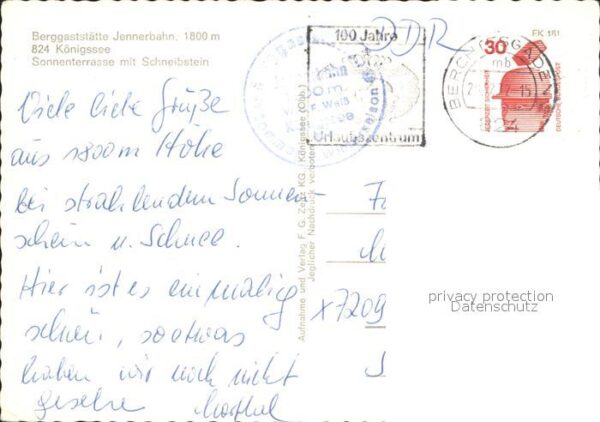 Berggaststätte Jennerbahn, 1800 m
824 Königssee
Sonnenterrasse mit Schneibstein
Viele liebe Grüße
aus 1800 m Höhe
bei strahlendem Sonnen-
schein u. Schnee.
Hier ist es einmalig
schön, so etwas
haben wir noch nicht
gesehen
Aufnahme und Verlag F. G. Zeitz KG., Königssee (Obb.)
Jeglicher Nachdruck verboten
100 Jahre
Urlaubszentrum
DDR
FK 151
30
BERCHTESGADEN
mb
824
DEUTSCHE BUNDESPOST
x7209
privacy protection
Datenschutz